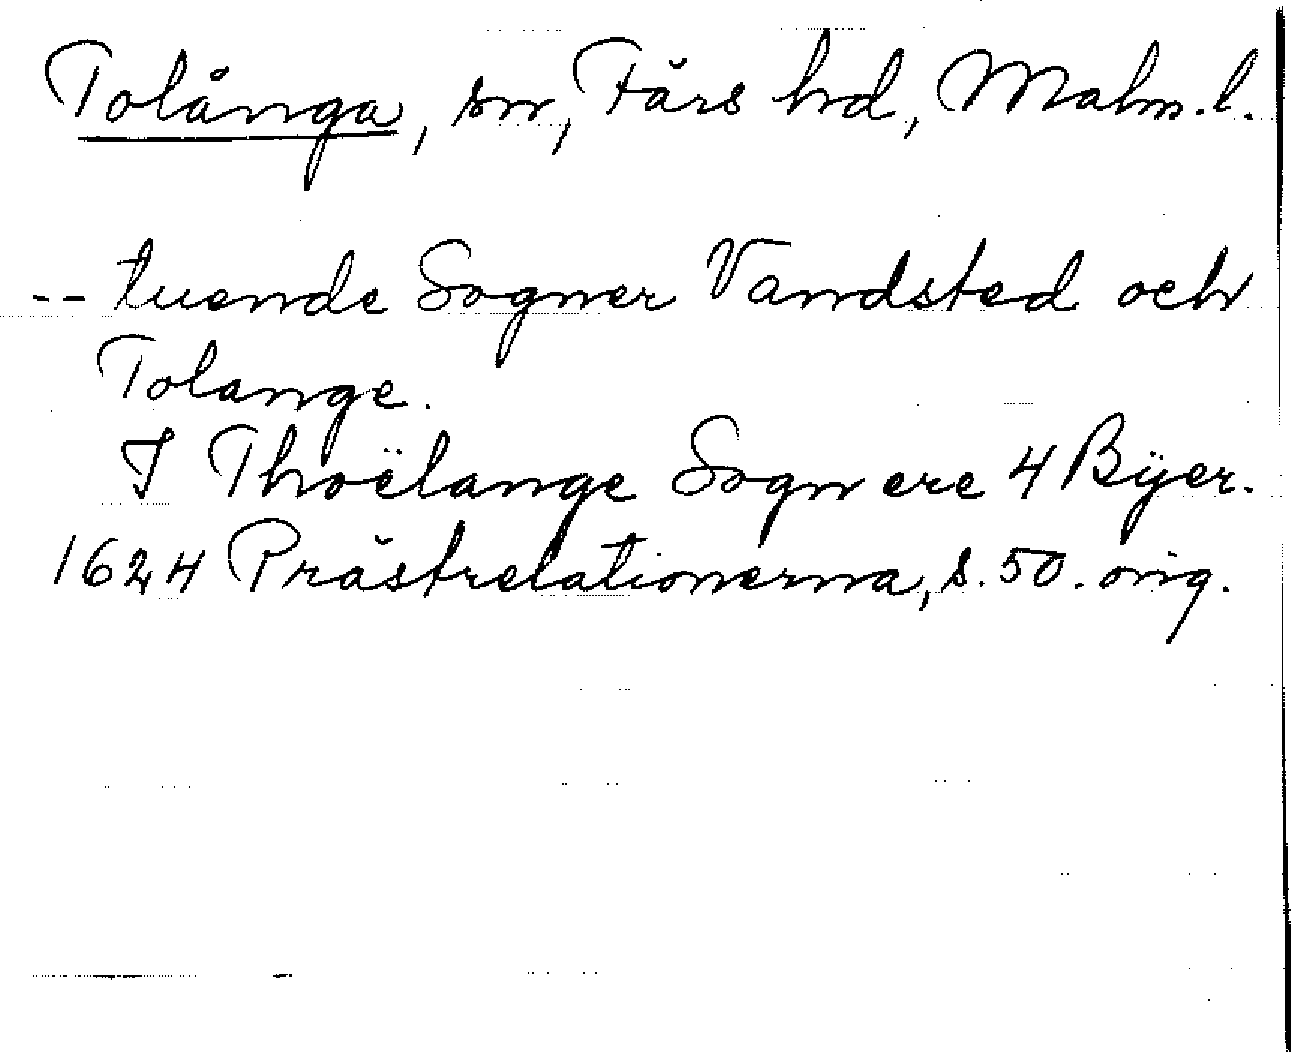 Tolånga, sn, Färs hd, Malm. l.
-- tuende Sogner Vandsted och
Tolange.
I Thoëlange Sogn ere 4 Bÿer.
1624 Prästrelationerna, s. 50. orig.